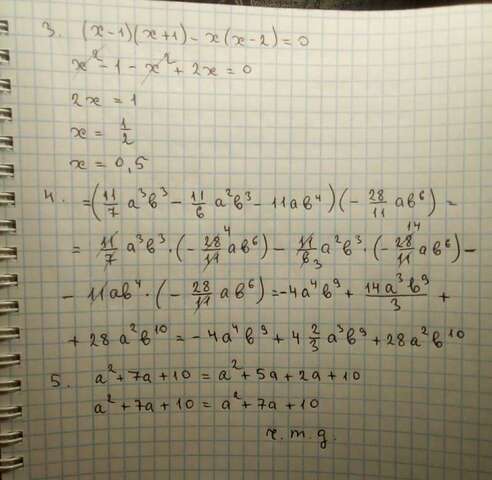 3. (x-1)(x+1)-x(x-2)=0
x²-1-x²+2x=0
2x=1
x=1/2
x=0,5
4. =(11/7 a³b³ - 11/6 a²b³ - 11ab⁴)(-28/11 ab⁶)=
= 11/7 a³b³·(-28/11 ab⁶)⁴ - 11/6 ₃ a²b³·(-28/11 ab⁶)¹⁴ -
- 11ab⁴·(-28/11 ab⁶)=-4a⁴b⁹ + 14a³b⁹/3 +
+ 28a²b¹⁰ = -4a⁴b⁹ + 4 2/3 a³b⁹ + 28a²b¹⁰
5. a²+7a+10 = a²+5a+2a+10
a²+7a+10 = a²+7a+10
ч.т.д.